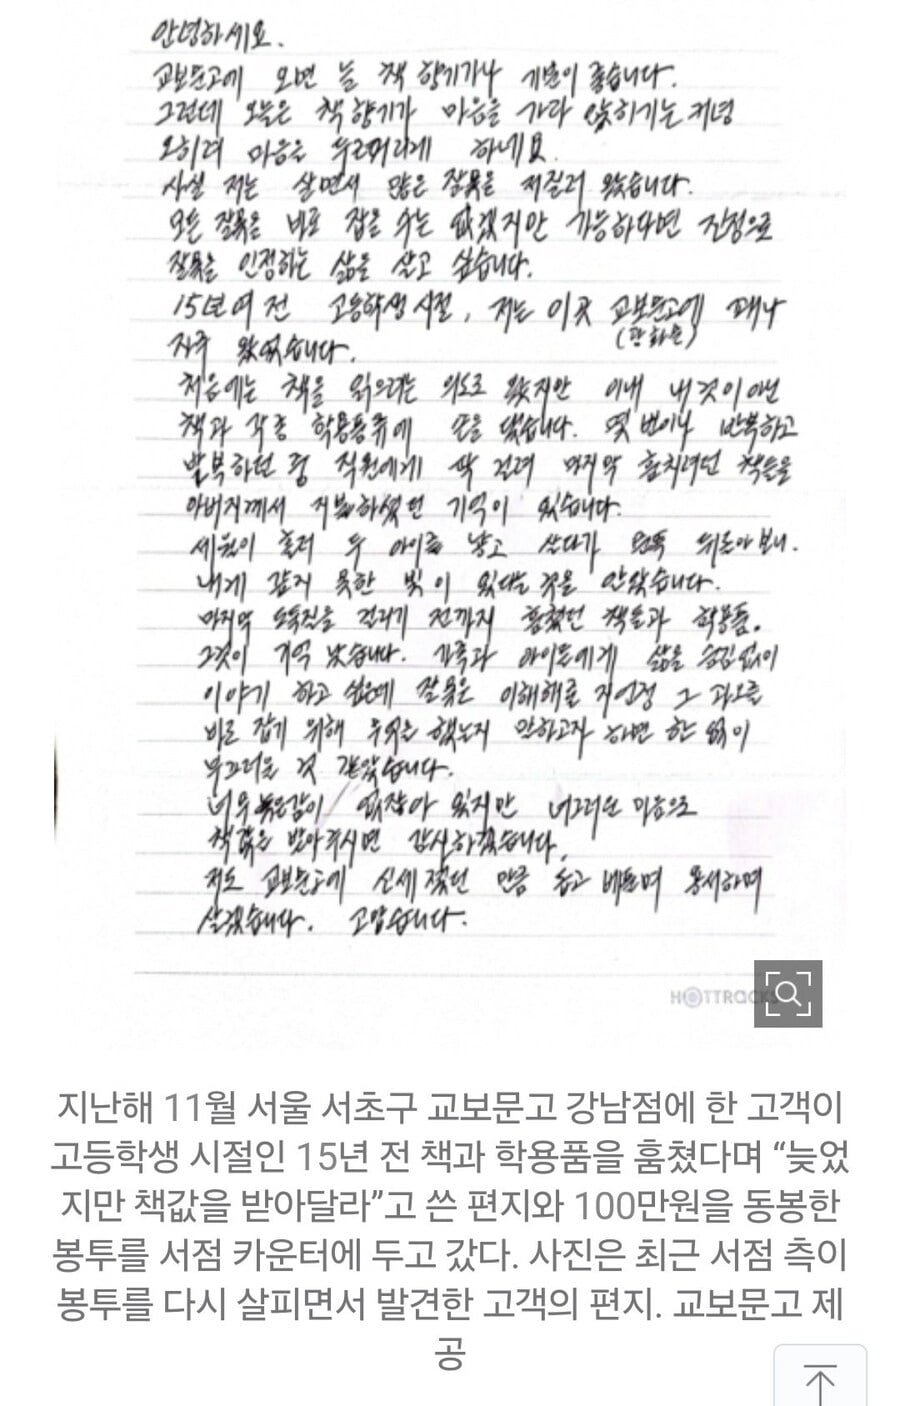 안녕하세요.
교보문고에 오면 늘 책 향기가나 기분이 좋습니다.
그런데 오늘은 책 향기가 마음을 가라 앉히기는 커녕
오히려 마음을 무겁게 하네요.
사실 저는 살면서 많은 잘못을 저질러 왔습니다.
모든 잘못을 바로 잡을 수는 없겠지만 가능하다면 진정으로
잘못을 인정하는 삶을 살고 싶습니다.
15년여 전 고등학생 시절, 저는 이곳 교보문고에 꽤나
(광화문)
자주 왔었습니다.
처음에는 책을 읽으려는 의도로 왔지만 이내 내 것이 아닌
책과 각종 학용품류에 손을 댔습니다. 몇 번이나 반복하고
반복하던 중 직원에게 딱 걸려 마지막 훔치려던 책들을
아버지께서 지불하셨던 기억이 있습니다.
세월이 흘러 두 아이를 낳고 살다가 문득 뒤돌아 보니.
내게 갚지 못한 빚이 있다는 것을 알았습니다.
마지막 도둑질을 걸리기 전까지 훔쳤던 책들과 학용품.
그것이 기억 났습니다. 가족과 아이들에게 삶을 숨김없이
이야기 하고 싶은데 잘못은 이해해줄 지언정 그 과오를
바로 잡기 위해 무엇을 했는지 말하고자 하면 한 없이
부끄러울 것 같았습니다.
너무 늦은감이 없잖아 있지만 너그러운 마음으로
책 값을 받아주시면 감사하겠습니다.
저도 교보문고에 신세 졌던 만큼 돕고 베풀며 용서하며
살겠습니다. 고맙습니다.
HOTTRACKS
지난해 11월 서울 서초구 교보문고 강남점에 한 고객이
고등학생 시절인 15년 전 책과 학용품을 훔쳤다며 “늦었
지만 책값을 받아달라”고 쓴 편지와 100만원을 동봉한
봉투를 서점 카운터에 두고 갔다. 사진은 최근 서점 측이
봉투를 다시 살피면서 발견한 고객의 편지. 교보문고 제
공